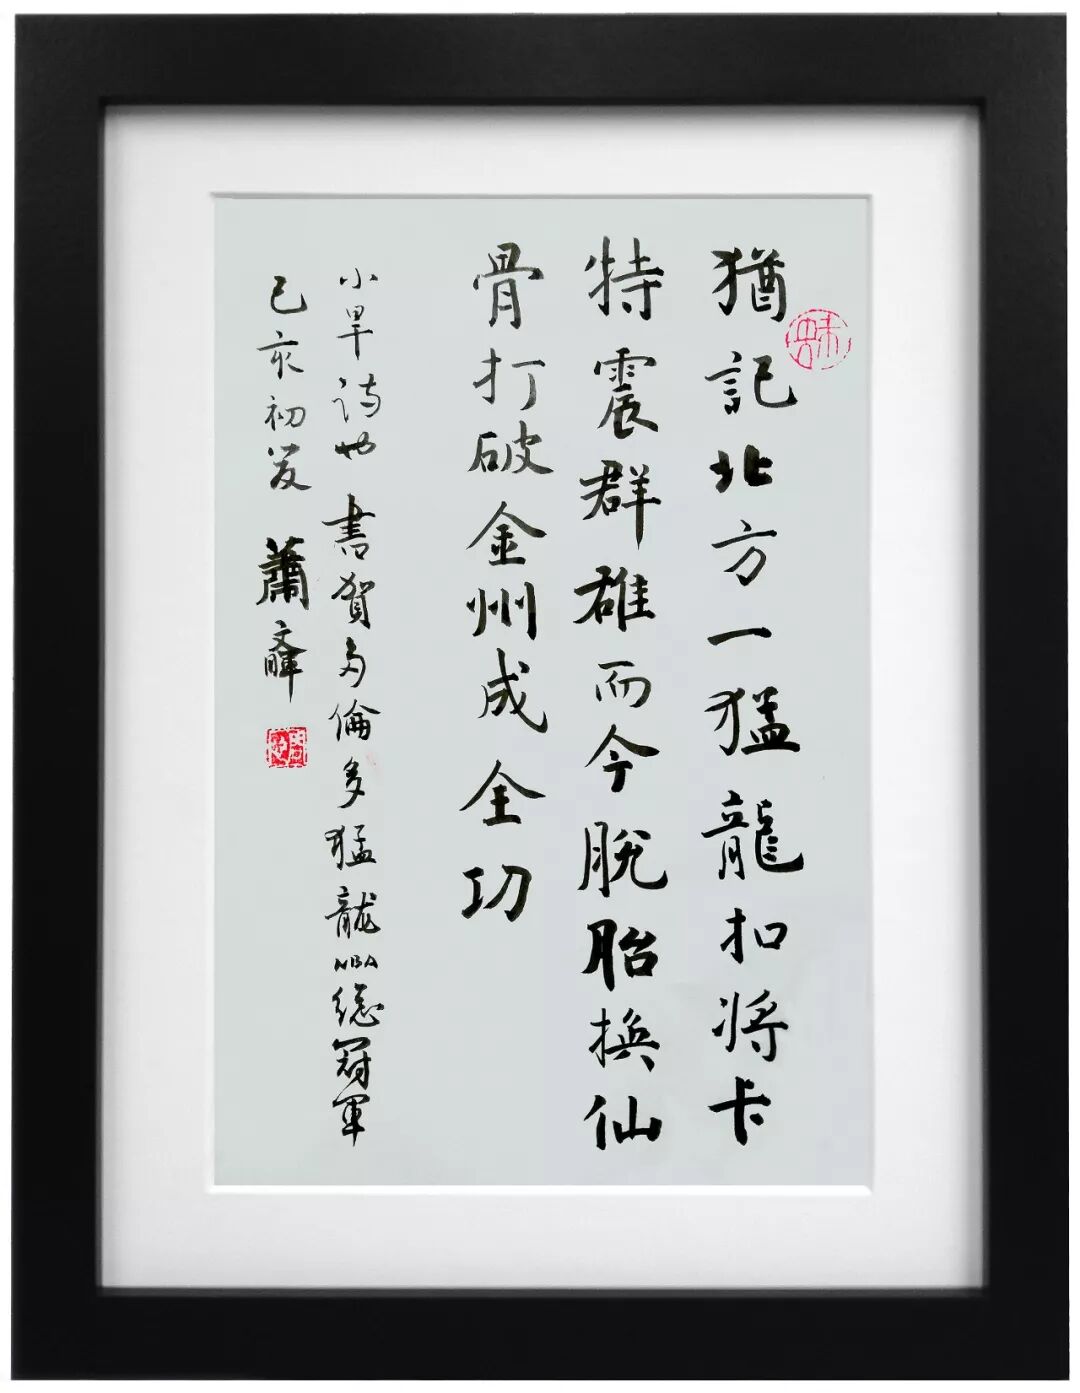 猶記北方一猛龍扣將卡
特震群雄而今脫胎換仙
骨打破金州成全功
小旱詩也 書賀多倫多猛龍NBA總冠軍
己亥初夏 蕭文暉